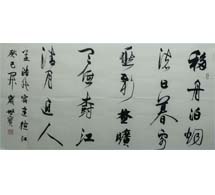 移舟泊烟
渚日暮客
愁新野曠
天低樹江
清月近人
孟浩然宿建德江
癸巳